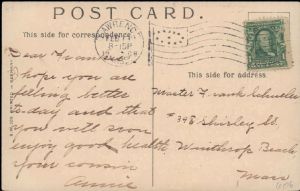 POST CARD.
This side for correspondence.
This side for address.
LAWRENC
FEB
8-15P
Dear Frankie
I hope you are
feeling better
to-day and that
you will soon
enjoy good health.
your cousin
Annie
Master Frank
Shirley St.
Winthrop Beach
Mass